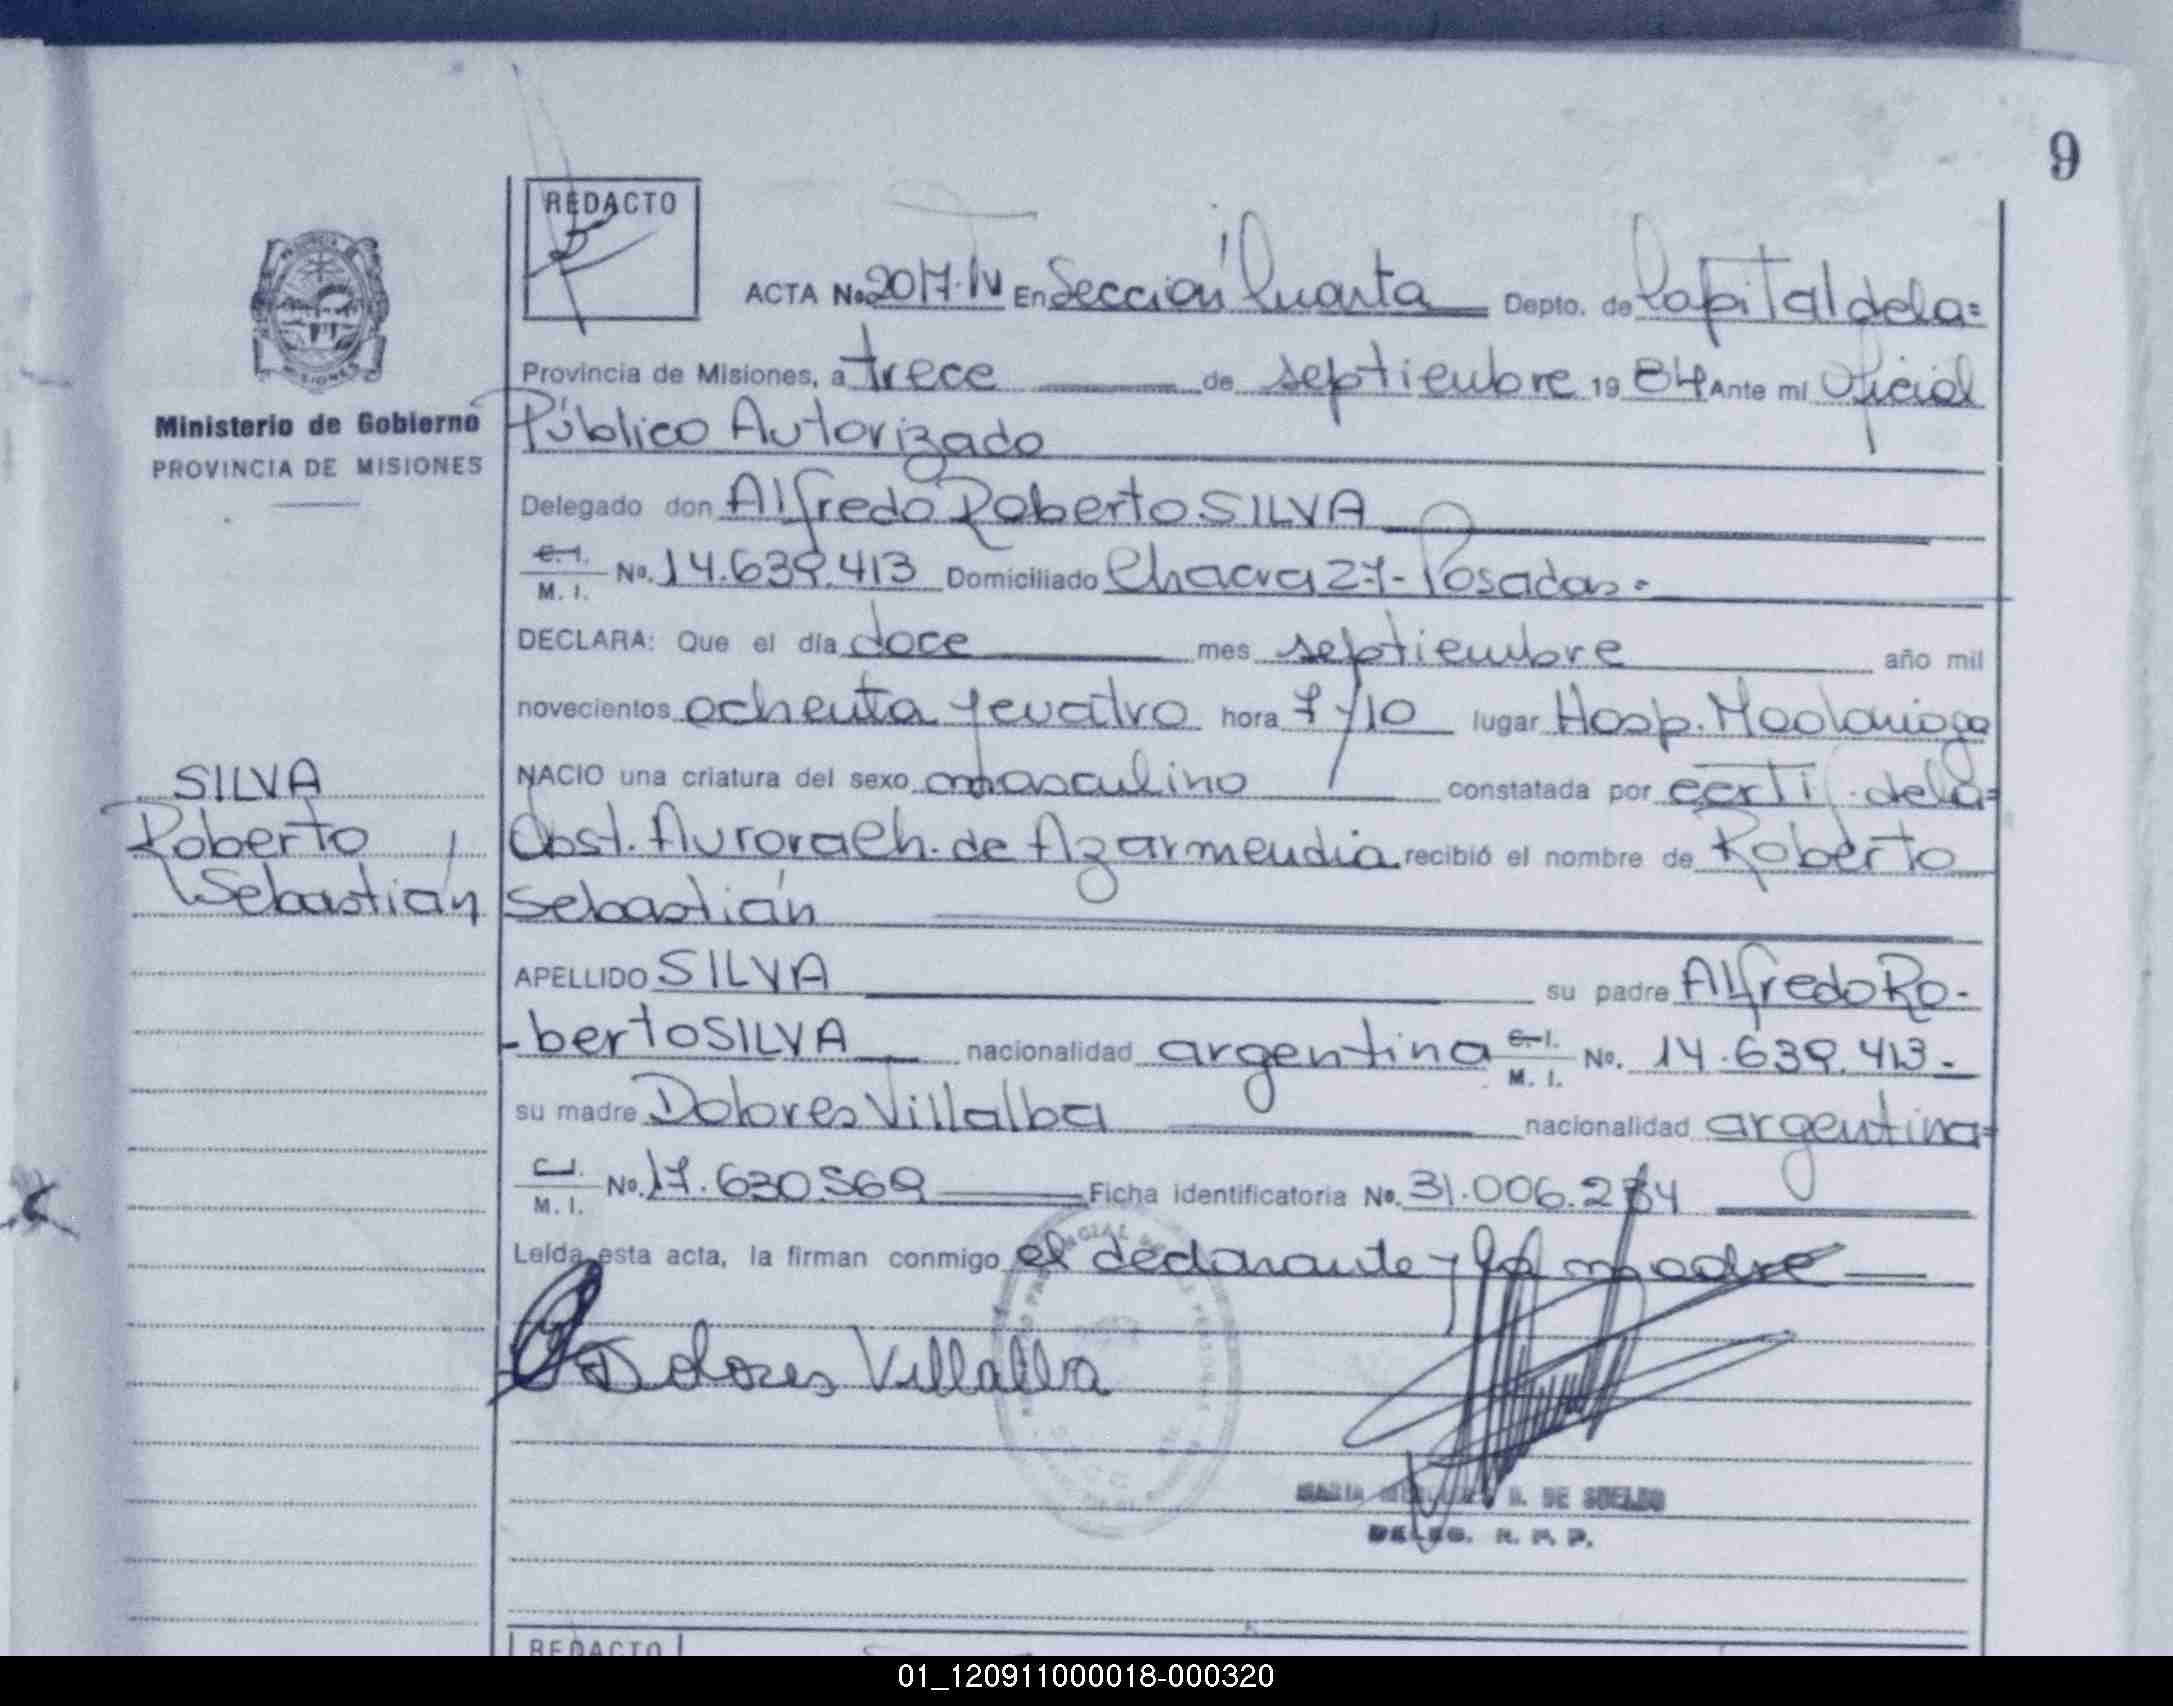 9
REDACTO
ACTA No. 2017-IV En Sección Cuarta Depto. de Capital de la=
Provincia de Misiones, a trece de septiembre 19 84 Ante mí Oficial
Ministerio de Gobierno
PROVINCIA DE MISIONES
Público Autorizado
Delegado don Alfredo Roberto SILVA
C. I. M. I. No. 14.639.413 Domiciliado Chacra 27- Posadas.
DECLARA: Que el día doce mes septiembre año mil
novecientos ochenta y cuatro hora 7 y 10 lugar Hosp. Madariaga
NACIO una criatura del sexo masculino constatada por certif. de la=
Obst. Aurora Ch. de Azarmendia recibió el nombre de Roberto
Sebastián
SILVA
Roberto
Sebastián
APELLIDO SILVA su padre Alfredo Ro-
-berto SILVA nacionalidad argentina C. I. M. I. No. 14.639.413-
su madre Dolores Villalba nacionalidad argentina=
C. I. M. I. No. 17.630.569 Ficha identificatoria No. 31.006.234
Leída esta acta, la firman conmigo el declarante y la madre
Dolores Villalba
MARIA B. DE SUELDO
DELEG. R. P. P.
REDACTO
01_120911000018-000320